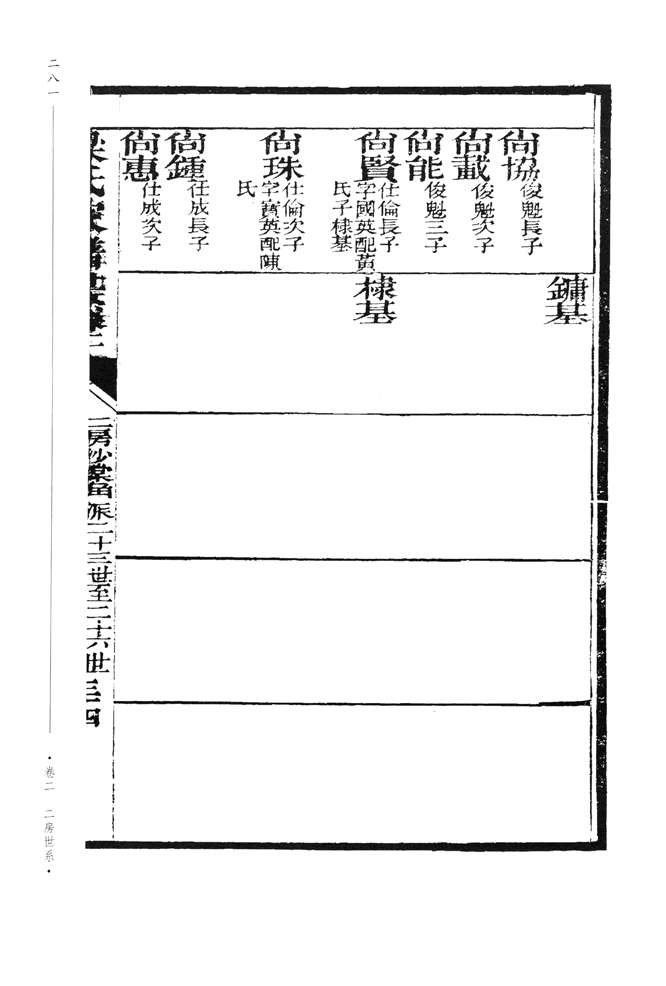 尚協
俊魁長子
鏞基
尚載
俊魁次子
尚能
俊魁三子
尚賢
仕倫長子
字國英配黃
氏子棣基
棣基
尚珠
仕倫次子
字寶英配陳
氏
尚鍾
仕成長子
尚惠
仕成次子
梁氏家譜世系卷二
二房沙棠角派二十三世至二十六世 三四
二八一
·卷二 二房世系·